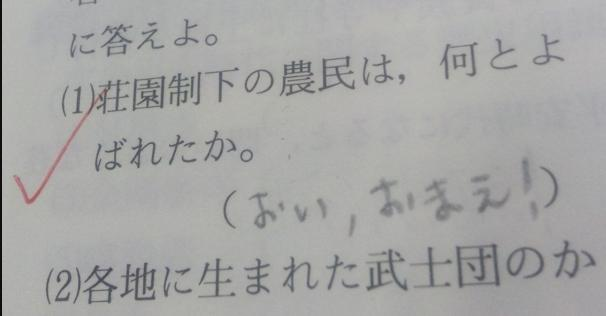 に答えよ。
(1)荘園制下の農民は，何とよ
ばれたか。
(おい，おまえ!)
(2)各地に生まれた武士団のか